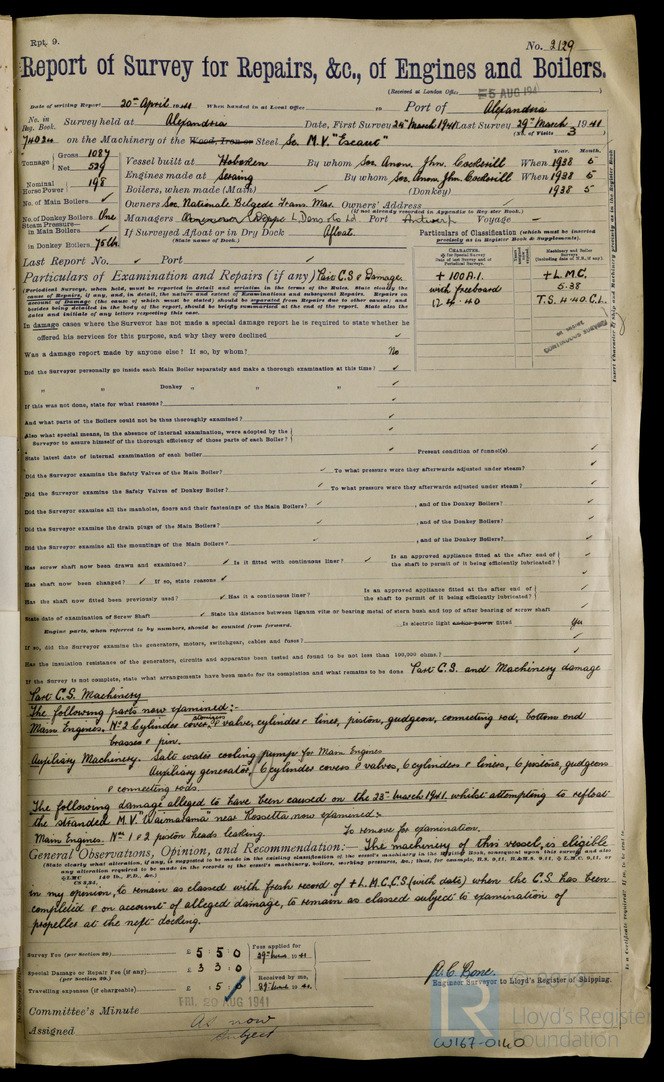 Rpt. 9.
No. 2129
Report of Survey for Repairs, &c., of Engines and Boilers.
(Received at London Office 5 AUG 1941)
Date of writing Report 20th April 1941 When handed in at Local Office 19 Port of Alexandria
No. in Reg. Book. Survey held at Alexandria Date, First Survey 24th March 1941 Last Survey 29th March 1941
(No. of Visits 3)
74034 on the Machinery of the Wood, Iron or Steel Sc. M.V. "Escaut"
Tonnage Gross 1087 Net 529
Vessel built at Hoboken By whom Soc. Anon. Jhn. Cockerill When 1938 5
Year. Month.
Engines made at Seraing By whom Soc. Anon. Jhn. Cockerill When 1938 5
Nominal Horse Power 198
Boilers, when made (Main) ✓ (Donkey) 1938 5
No. of Main Boilers ✓
Owners Soc. National Belgede Trans. Mar. Owners' Address ✓
(If not already recorded in Appendix to Register Book.)
No. of Donkey Boilers One
Managers Armement Deppe Port Antwerp Voyage –
Steam Pressure—
in Main Boilers ✓
If Surveyed Afloat or in Dry Dock Afloat
(State name of Dock.)
in Donkey Boilers 75 lb.
Particulars of Classification (which must be inserted precisely as in Register Book & Supplements).
Last Report No. ✓ Port ✓
CHARACTER.
+ 100 A.1. with freeboard 12.4.40
+ L.M.C. 5.38 T.S. 4.40. C.L.
Particulars of Examination and Repairs (if any) Part C.S. & Damage
(Periodical Surveys, when held, must be reported in detail and seriatim in the terms of the Rules. State clearly the
In damage cases where the Surveyor has not made a special damage report he is required to state whether he
offered his services for this purpose, and why they were declined ✓
Was a damage report made by anyone else? If so, by whom? No
Did the Surveyor personally go inside each Main Boiler separately and make a thorough examination at this time? ✓
" " Donkey " " " ✓
If this was not done, state for what reasons? ✓
And what parts of the Boilers could not be thus thoroughly examined? ✓
Also what special means, in the absence of internal examination, were adopted by the
Surveyor to assure himself of the thorough efficiency of those parts of each Boiler? ✓
State latest date of internal examination of each boiler ✓ Present condition of funnel(s) ✓
Did the Surveyor examine the Safety Valves of the Main Boiler? ✓ To what pressure were they afterwards adjusted under steam? ✓
Did the Surveyor examine the Safety Valves of Donkey Boiler? ✓ To what pressure were they afterwards adjusted under steam? ✓
Did the Surveyor examine all the manholes, doors and their fastenings of the Main Boilers? ✓, and of the Donkey Boilers? ✓
Did the Surveyor examine the drain plugs of the Main Boilers? ✓, and of the Donkey Boilers? ✓
Did the Surveyor examine all the mountings of the Main Boilers? ✓, and of the Donkey Boilers? ✓
Has screw shaft now been drawn and examined? ✓ Is it fitted with continuous liner? ✓ Is an approved appliance fitted at the after end of the shaft to permit of it being efficiently lubricated? ✓
Has shaft now been changed? ✓ If so, state reasons ✓
Has the shaft now fitted been previously used? ✓ Has it a continuous liner? ✓ Is an approved appliance fitted at the after end of the shaft to permit of it being efficiently lubricated? ✓
State date of examination of Screw Shaft ✓ State the distance between lignum vitæ or bearing metal of stern bush and top of after bearing of screw shaft ✓
Engine parts, when referred to by numbers, should be counted from forward. Is electric light and/or power fitted Yes
If so, did the Surveyor examine the generators, motors, switchgear, cables and fuses? ✓
Has the insulation resistance of the generators, circuits and apparatus been tested and found to be not less than 100,000 ohms? ✓
If the Survey is not complete, state what arrangements have been made for its completion and what remains to be done Part C.S. and Machinery damage
Part C.S. Machinery
The following parts now examined:-
Main Engines. No 2 Cylinder cover, & valve, cylinder & liner, piston, gudgeon, connecting rod, bottom end
brasses & pin.
Auxiliary Machinery. Salt water cooling pump for Main Engines
Auxiliary generator, 6 cylinder covers & valves, 6 cylinders & liners, 6 pistons, gudgeons
& connecting rods.
The following damage alleged to have been caused on the 23rd March 1941. whilst attempting to refloat
the stranded M.V. "Waimarama" near Rossetta now examined:-
Main Engines. Nos 1 & 2 piston heads leaking. To remove for examination.
General Observations, Opinion, and Recommendation:— The machinery of this vessel, is eligible
(State clearly what alteration, if any, is suggested to be made in the existing classification of the vessel's machinery
in my opinion, to remain as classed with fresh record of + L.M.C.C.S. (with date) when the C.S. has been
completed & on account of alleged damage, to remain as classed subject to examination of
propeller at the next docking.
Survey Fee (per Section 29) £ 5 5 0 Fees applied for
29th 19 41
Special Damage or Repair Fee (if any) (per Section 29.) £ 3 3 0
Received by me,
Travelling expenses (if chargeable) £ 5
FRI. 29 AUG 1941
Engineer Surveyor to Lloyd's Register of Shipping.
Committee's Minute
Assigned As now
Subject
LR
Lloyd's Register
Foundation
W167-0140